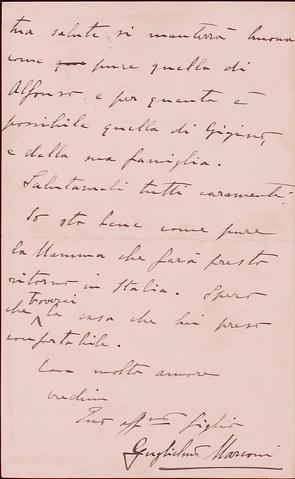 tua salute si manterrà buona
come pure quella di
Alfonso e per quanto è
possibile quella di Gigino,
e della sua famiglia.
Salutameli tutti caramente.
Io sto bene come pure
la Mamma che farà presto
ritorno in Italia. Spero
che troverai la casa che hai preso
confortabile.
Con molto amore
credimi
Tuo affmo figlio
Guglielmo Marconi